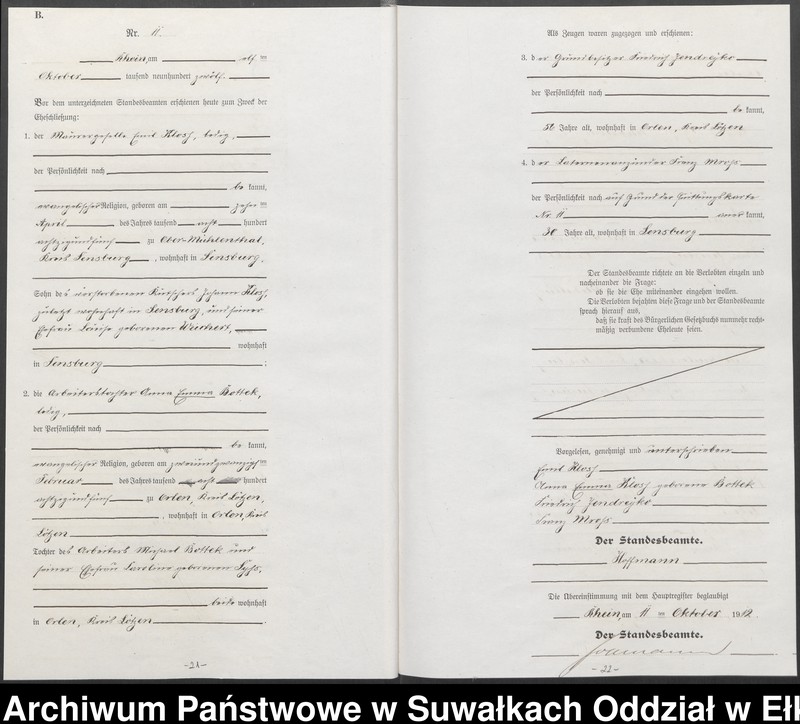 B.
Nr. 11.
Rhein, am elf ten
Oktober tausend neunhundert zwölf.
Vor dem unterzeichneten Standesbeamten erschienen heute zum Zweck der
Eheschließung:
1. der Maurergeselle Emil Klosz, ledig,
der Persönlichkeit nach
be kannt,
evangelischer Religion, geboren am zehn ten
April des Jahres tausend acht hundert
achtzigundfünf zu Ober-Mühlenthal,
Kreis Sensburg, wohnhaft in Sensburg,
Sohn des verstorbenen Kutschers Johann Klosz,
zuletzt wohnhaft in Sensburg, und seiner
Ehefrau Louise geborenen Weichert,
wohnhaft
in Sensburg
2. die Arbeiterstochter Anna Emma Bottek,
ledig,
der Persönlichkeit nach
be kannt,
evangelischer Religion, geboren am zweiundzwanzigsten
Februar des Jahres tausend acht hundert
achtzigundfünf zu Orlen, Kreis Lötzen,
, wohnhaft in Orlen, Kreis
Lötzen
Tochter des Arbeiters Michael Bottek und
seiner Ehefrau Caroline geborenen
beide wohnhaft
in Orlen, Kreis Lötzen
-21-
Als Zeugen waren zugezogen und erschienen:
3. der Grundbesitzer Friedrich Jendreyko
der Persönlichkeit nach
be kannt,
Jahre alt, wohnhaft in Orlen, Kreis Lötzen
4. der Laternenanzünder Franz Mrosz
der Persönlichkeit nach auf Grund der Quittungskarte
Nr. 11 aner kannt,
30 Jahre alt, wohnhaft in Sensburg
Der Standesbeamte richtete an die Verlobten einzeln und
nacheinander die Frage:
ob sie die Ehe miteinander eingehen wollen.
Die Verlobten bejahten diese Frage und der Standesbeamte
sprach hierauf aus,
daß sie kraft des Bürgerlichen Gesetzbuchs nunmehr recht-
mäßig verbundene Eheleute seien.
Vorgelesen, genehmigt und unterschrieben
Emil Klosz
Anna Emma Klosz geborene Bottek
Friedrich Jendreyko
Franz Mrosz
Der Standesbeamte.
Hoffmann
Die Übereinstimmung mit dem Hauptregister beglaubigt
Rhein, am 11 ten Oktober 1912
Der Standesbeamte.
-22-
Archiwum Państwowe w Suwałkach Oddział w Eł